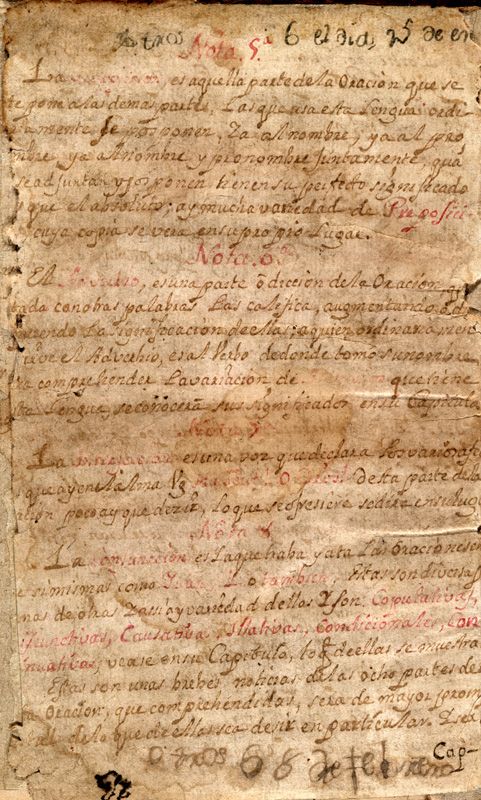 otros 6 el dia, 25 de en
Nota. 5.ª
La es aquella parte de la Oracion que se
te pone a las demas partes, Las que usa esta Lengua ordi
riamente se nos ponen, Ya al nombre, ya al pro
mbre, ya al nombre y pronombre juntamente, qua
se adjuntan, y tienen su perfecto significado
que el absoluto; ay mucha variedad de Preposici
cuya copia se vera en su proprio Lugar.
Nota. 6.ª
El Adverbio, es una parte ō diccion de la Oracion
tada con obas palabras Las califica, augmentando, ō di
nuiendo La significacion de ellas; a quien ordinariamen
sirve el Adverbio, es al Verbo de donde tomo su nombre
ra comprehender La variacion de que tiene
sta Lengua, se conocera sus significados en su Capitulo
Nota 7ª
La interjecion es una voz que declara Los varios afe
que ay en la Alma Desta parte de la
acion poco ay que dezir, lo que se ofresiere se dira en su luga
Nota 8
La conjuncion es La que traba y ata Las Oraciones en
e si mismas como Estas son diversas
nas de otras Y assi ay variedad de llos Y son. Copulativas,
isiunctivas, Causativa, Illativas, Condicionales, Con
inuativas, vease en su Capitulo, de ellas se muestra
Estas son unas brebes noticias de las ocho partes de
a Oracion, que comprehendidas, sera de mayor prom
lo que de ellas sea desir en particular.
Cap-
Otros 6 8 de febrero